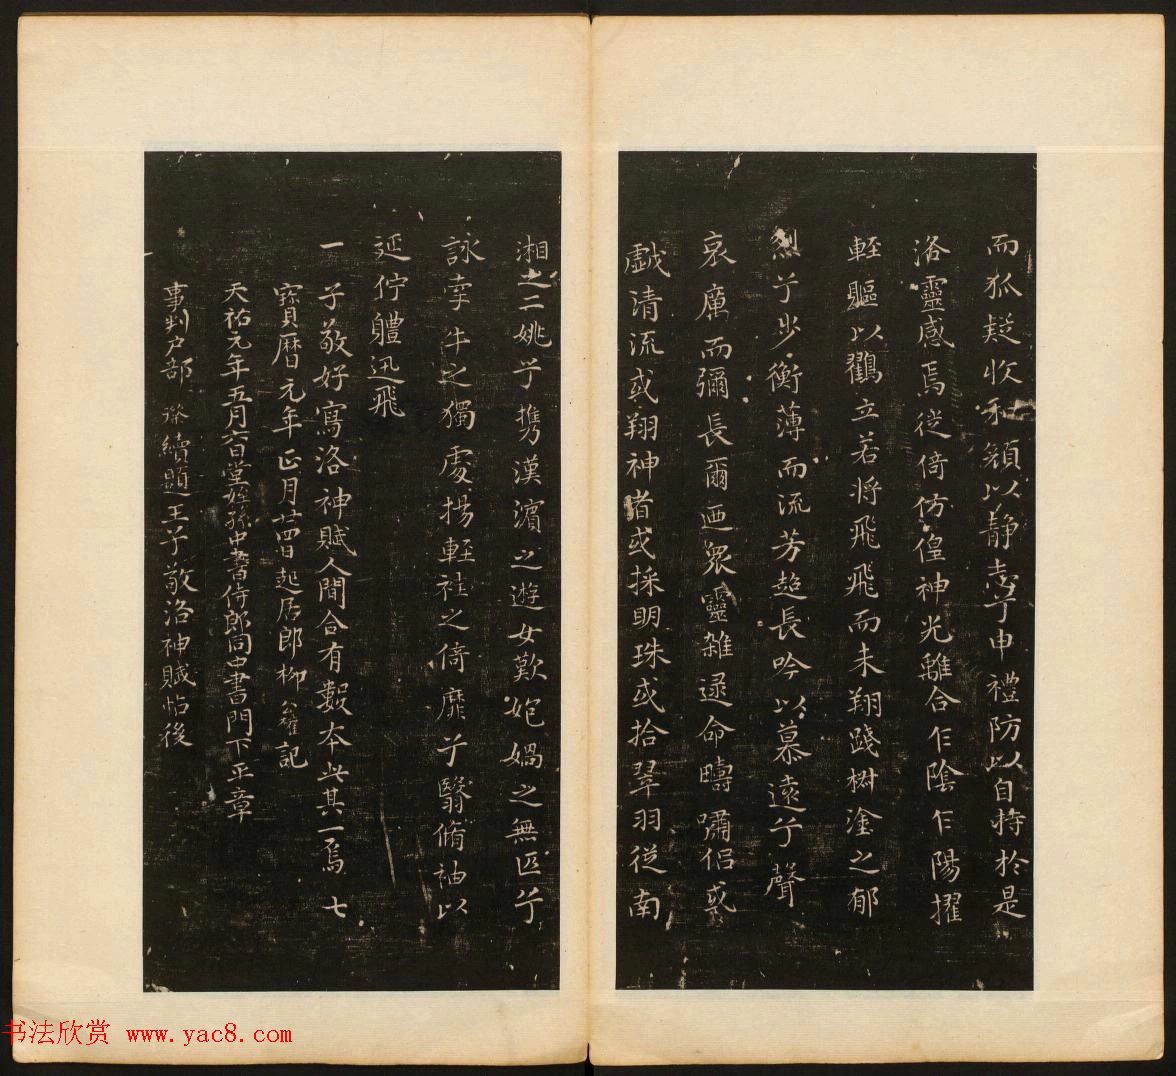 而狐疑收和顏以靜志兮申禮防以自持於是
洛靈感焉從倚仿偟神光離合乍陰乍陽擢
輕軀以鶴立若將飛飛而未翔踐椒塗之郁
烈兮步衡薄而流芳超長吟以慕遠兮聲
哀厲而彌長爾迺眾靈雜遝命疇嘯侶或
戲清流或翔神渚或採明珠或拾翠羽從南
湘之二姚兮攜漢濱之遊女歎媲媧之無匹兮
詠牽牛之獨處揚輕袿之倚靡兮翳脩袖以
延佇體迅飛
一 子敬好寫洛神賦人間合有數本此其一焉 七
寶曆元年正月廿四日起居郎柳公權記
天祐元年五月六日堂姪孫中書侍郎同中書門下平章
事判户部 璨續題王子敬洛神賦帖後
书法欣赏 www.yac8.com